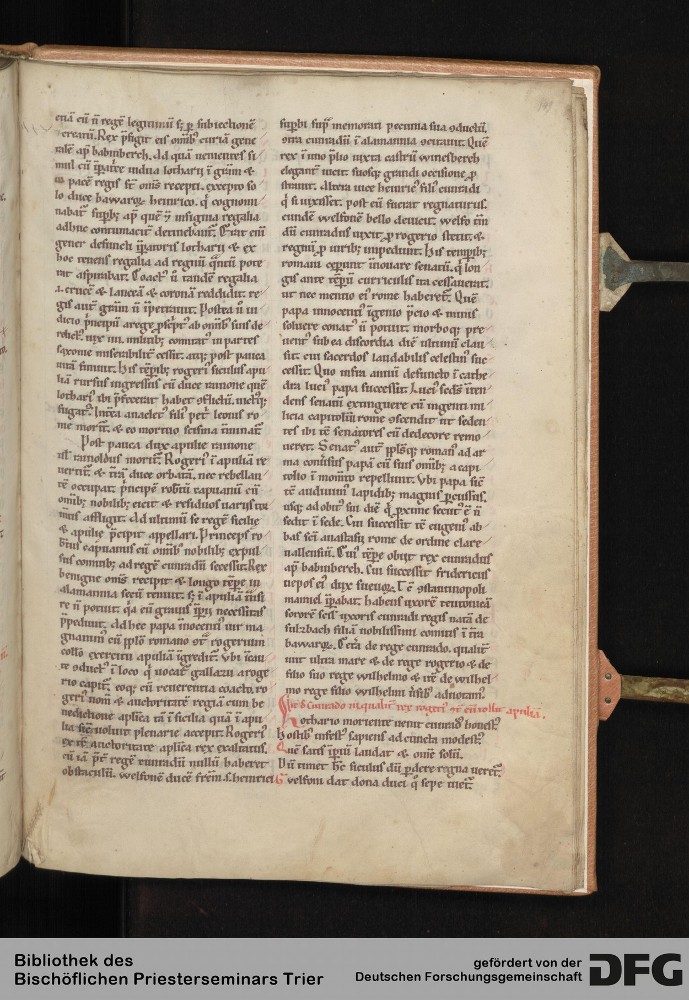 etiā eū ñ regē legitimū sȝ ꝑ subiectionē
creatū. Rex p̄figit eis om̄ibȝ curiā gene
ralē ap̄ babinberch. ad quā uenientes si
mul cū īꝑat̄ce uidua lotharii ī grām &
ī pacē regis st̄ om̄s recepti. excepto so
lo duce bawarȝ heinrico. q̇ cognomi
nabat᷑ supbȝ ap̄ quē ⁊ insignia regalia
adhuc contumacit᷑ detinebant᷑. Erat eni
gener defuncti īꝑatoris lotharii & ex
hoc tenens regalia ad regnū
rat aspirabat. Coact᷒ ū tandē regalia
.s. crucē & lanceā & coronā reddidit. re
gis aut̄ grām ñ īpetrauit. Postea ū iu
dicio p̄ncipū a rege ꝓsc͛pt᷒ ab om̄ibȝ suis de
relict᷒ uix iiii. militibȝ comitat᷒ in partes
saxonie miserabilit᷑ cessit. atqȝ post pauca
uitā finiuit. His tēꝑibȝ rogeri᷒ siculus apu
liā rursus ingressus cū duce rainone quē
lothari᷒ ibi p̄fecerat habet ↄflictū. uictqȝ
fugat᷑. Int̄ea anaclet᷒ fili᷒ pet͛ leonis ro
me morit᷑. & eo mortuo scisma t͛minat᷑.
Post pauca dux apulie rainone
ul̄ rainoldus morit᷑. Rogeri᷒ ī apuliā re
uertit᷑. & t͛rā duce orbatā. nec rebellan
tē occupat. p͛ncipē rob̄tū capuanū cū
om̄ibȝ nobilibȝ eicit & residuos uariis
affligit. Ad ultimū se regē sicilie
& apulie p̄cipit appellari. Princeps ro
b̄tus capuanus cū om̄ibȝ nobilibȝ expul
sus comitibȝ ad regē cunradū secessit. Rex
benigne om̄s recipit & longo tēꝑe in
alamannia secū tenuit. sȝ ī apuliā
re ñ potuit. q̇a eū grauis īꝑii necessitas
p̄pediuit. Ad hec papa innocenti᷒ uir ma
gnanim᷒ cū pp̄lo romano ↄt͛ rogeriū
collō exercitu apuliā īgredit᷑. Vbi
te ↄduct᷒ ī loco q̇ uocat᷑ gallazū a roge
rio capit᷑. eoqȝ cū reuerentia coacto. ro
geri᷒ nom̄ & auctoritatē regiā cum be
nedictione apl̄ica tā ī sicilia quā ī apu
lia sic̄ uoluit plenarie accepit. Rogeri᷒
ex t̄c auctoritate apl̄ica rex exaltatus.
cū iā pt̄ regē cunradū nullū haberet
obstaculū. welfonē ducē frēm .s. heinrici
suꝑbi sup͛ memorati pecunia sua ↄductū.
ↄtra cunradū ī alamannia ↄcitauit. Quē
rex ī uno p̄lio iuxta castrū winesberch
eleganter uicit. suosqȝ grandi occisione ꝓ
strauit. Altera uice heinric᷒ fili᷒ cunradi
q̇ si uixisset. post eū fuerat regnaturus.
eundē welfonē bello deuicit. welfo tn̄
dū cunradus uixit. ꝓ rogerio stetit. &
regnū ꝓ uiribȝ impediuit. His temꝑibȝ
romani ceperunt īnouare senatū. q̇ lon
gis ante tēꝑū curriculis ita cessauerat.
ut nec mentio ei᷒ rome haberet᷑. Quē
papa innocenti᷒ īgenio p̄cio & minis
soluere conat᷒ ñ potuit. morboqȝ pre
uent᷒ sub ea discordia diē ultimū clau
sit. cui sacerdos laudabilis celestin᷒ suc
cessit. Quo infra annū defuncto ī cathe
dra luci᷒ papa successit. Luci᷒ sedis īten
dens senatū extinguere cū ingenti mi
licia capitoliū rome ↄscendit ut seden
tes ibi t̄c senatores cū dedecore remo
ueret. Senat᷒ aut̄ pp̄lsqȝ roman᷒ ad ar
ma conūsus papā cū suis om̄ibȝ a capi
tolio ī mom̄to repellunt. Vbi papa sic̄
t̄c audiuim᷒ lapidibȝ magnis ꝑcussus.
usqȝ ad obit᷒ sui diē q̇ ꝓxime secut᷒ ē ñ
sedit ī sede. Cui successit t̄c eugeni᷒ ab
bas sc̄i anastasii rome de ordine clare
uallensiū. Cui᷒ tēꝑe obiit rex cunradus
ap̄ babinberch. Cui successit fridericus
nepos ei᷒ dux sueuoȝ. T̄c ↄstantinopoli
manuel īꝑabat. habens uxorē teutonicā
sororē scil͛ uxoris cunradi regis natā de
sulzbach filiā nobilissimi comitis ī t͛ra
bawarȝ. Cetā de rege cunrado. qualit͛
iuit ultra mare & de rege rogerio & de
filio suo rege wilhelmo & itē de wilhel
mo rege filio wilhelmi adnotam᷒.
Itē de Cunrado in qualit͛ rex rogeri᷒ ↄt͛ eū tollit apuliā.
Lothario moriente uenit cunrad᷒ honest᷒
Hostibȝ infest᷒ sapiens ad cuncta modest᷒.
Quē satis īꝑiū laudat & omē solū.
Dū timet hc̄ siculus dū ꝑdere regna ueret᷑.
Guelfoni dat dona duci q̇ sepe met᷑.
Bibliothek des
Bischöflichen Priesterseminars Trier
gefördert von der
Deutschen Forschungsgemeinschaft
DFG